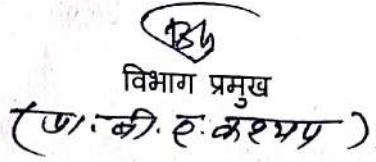 विभाग प्रमुख
(प्रा. बी. ए. कश्यप)